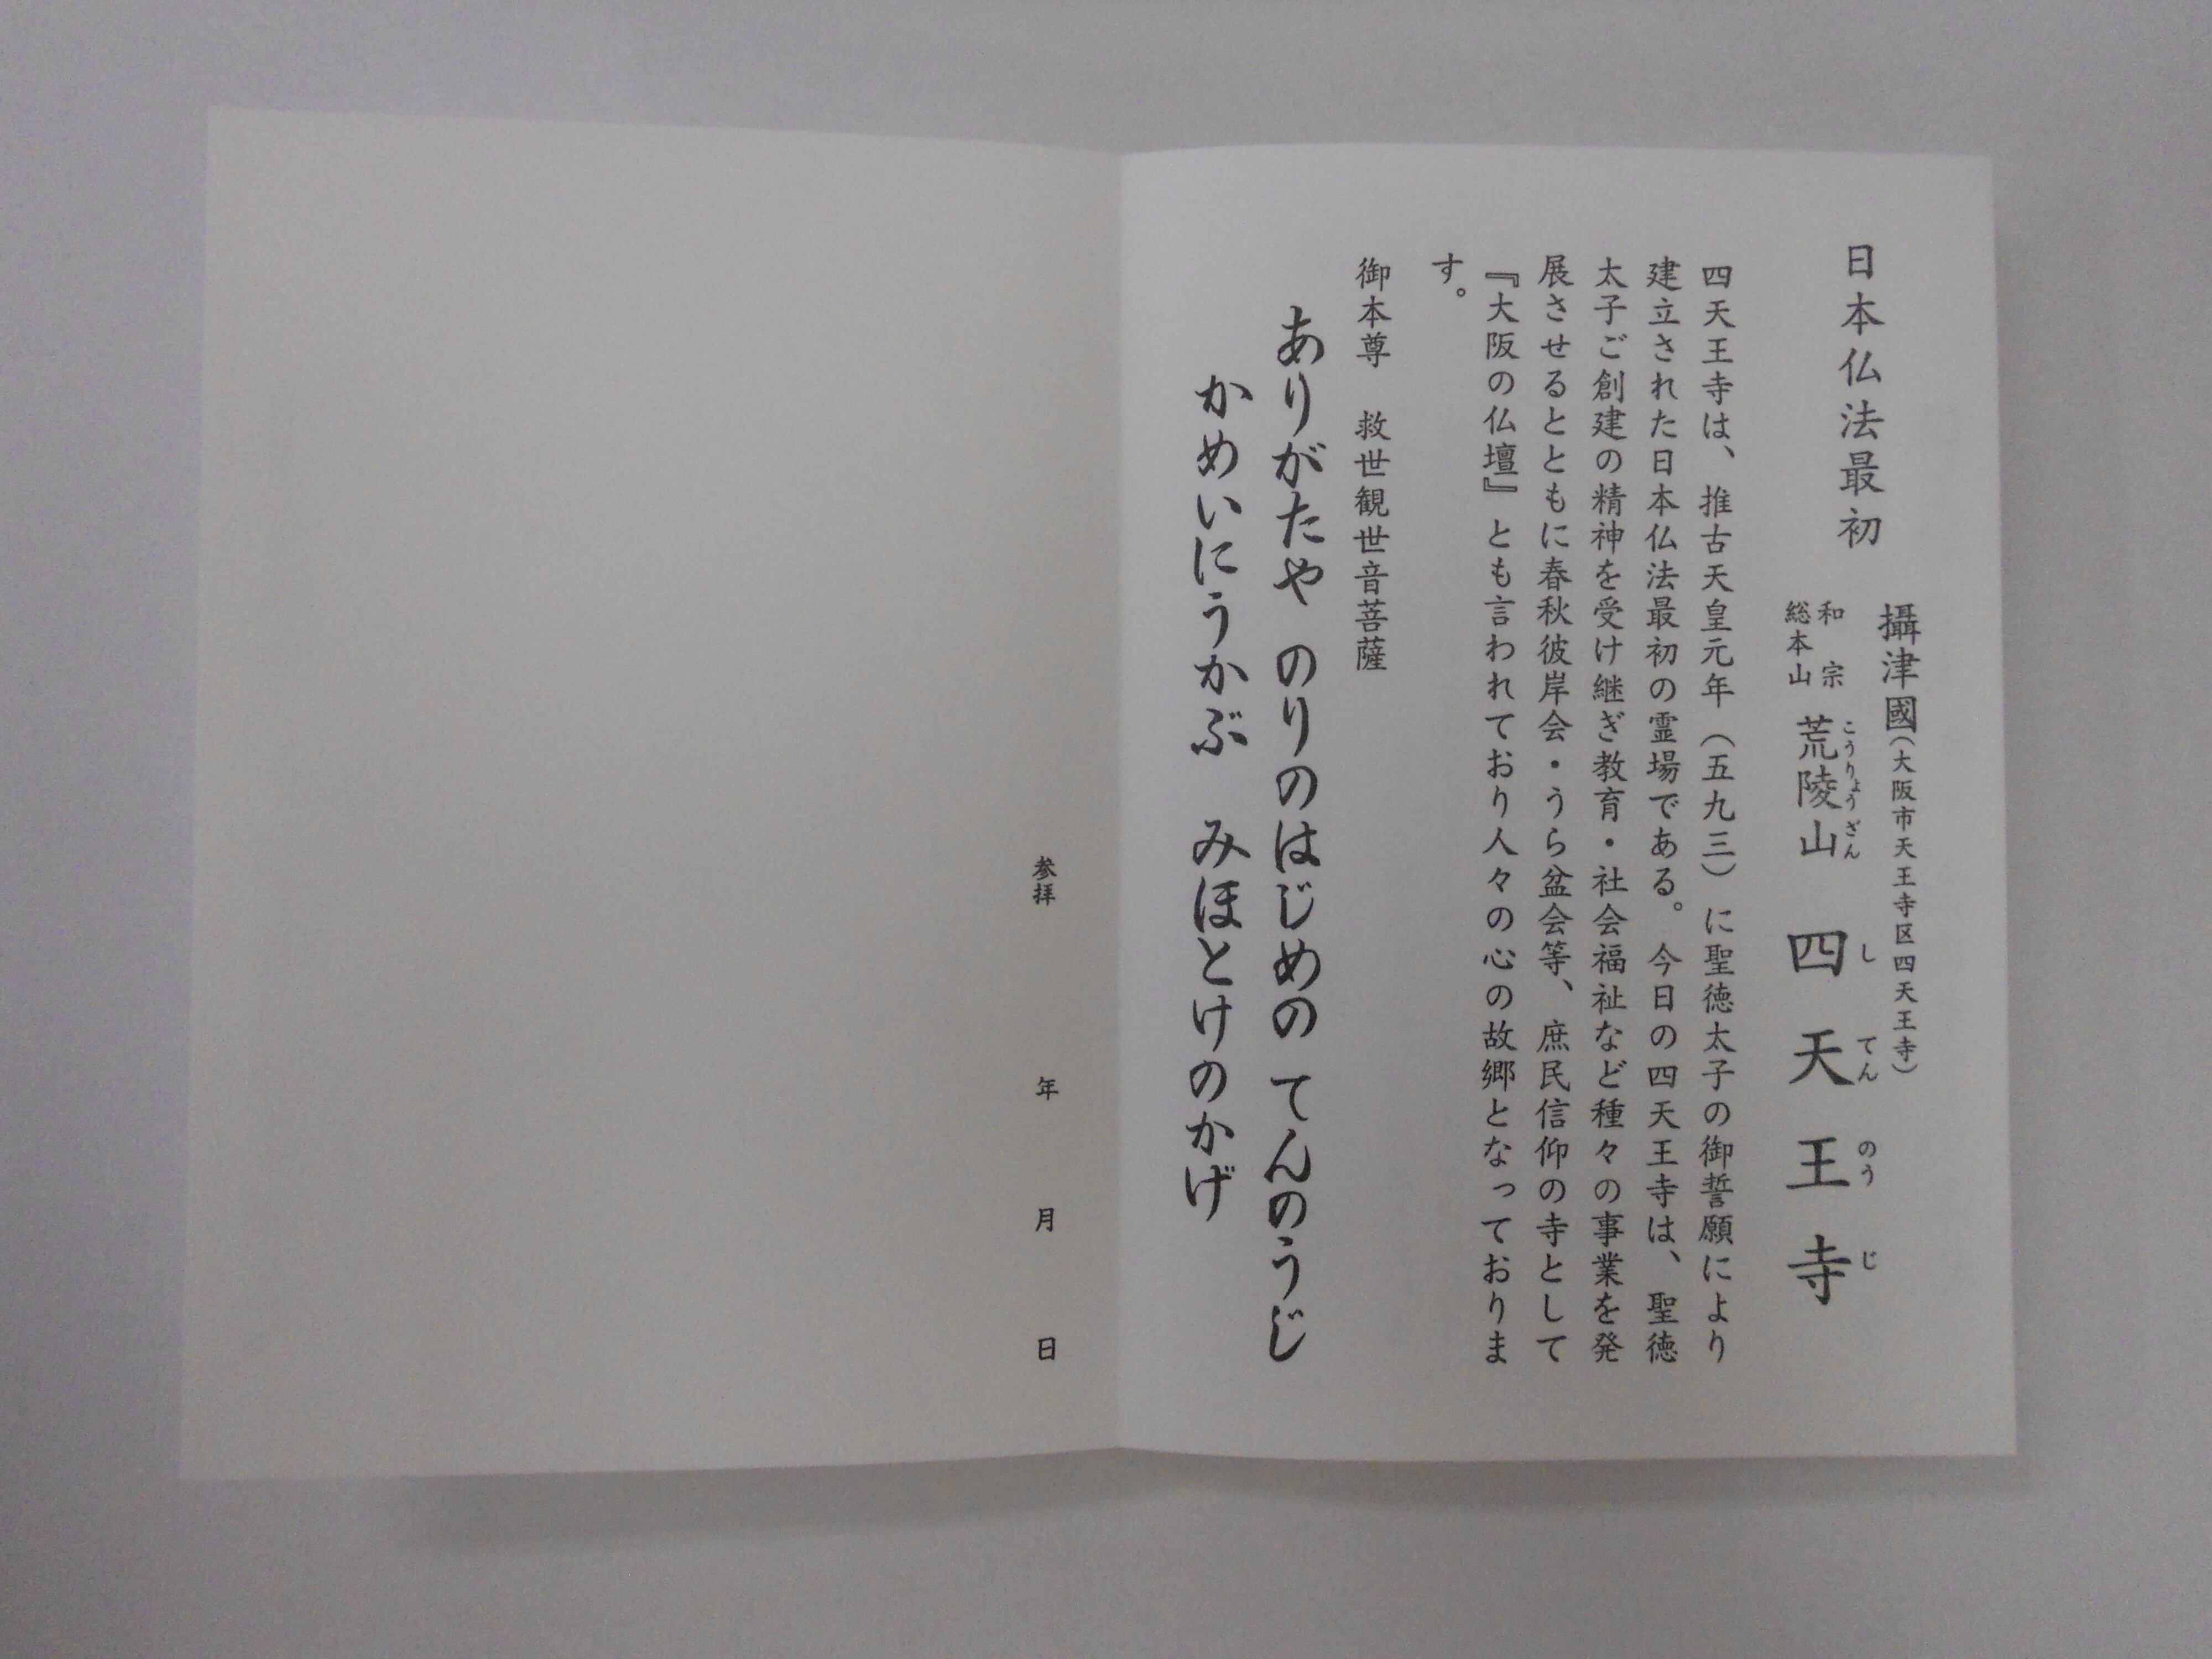 日本仏法最初
攝津國(大阪市天王寺区四天王寺)
和宗
総本山
荒陵山
こうりょうざん
四天王寺
してんのうじ
四天王寺は、推古天皇元年(五九三)に聖徳太子の御誓願により
建立された日本仏法最初の霊場である。今日の四天王寺は、聖徳
太子ご創建の精神を受け継ぎ教育・社会福祉など種々の事業を発
展させるとともに春秋彼岸会・うら盆会等、庶民信仰の寺として
『大阪の仏壇』とも言われており人々の心の故郷となっておりま
す。
御本尊 救世観世音菩薩
ありがたや のりのはじめの てんのうじ
かめいにうかぶ みほとけのかげ
参拝 年 月 日